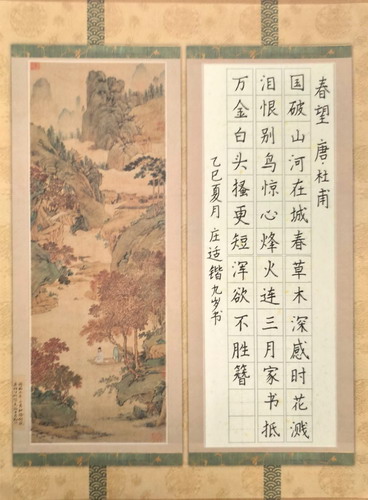 春望 唐·杜甫
国破山河在城春草木深感时花溅
泪恨别鸟惊心烽火连三月家书抵
万金白头搔更短浑欲不胜簪
乙巳夏月 庄适锴九岁书